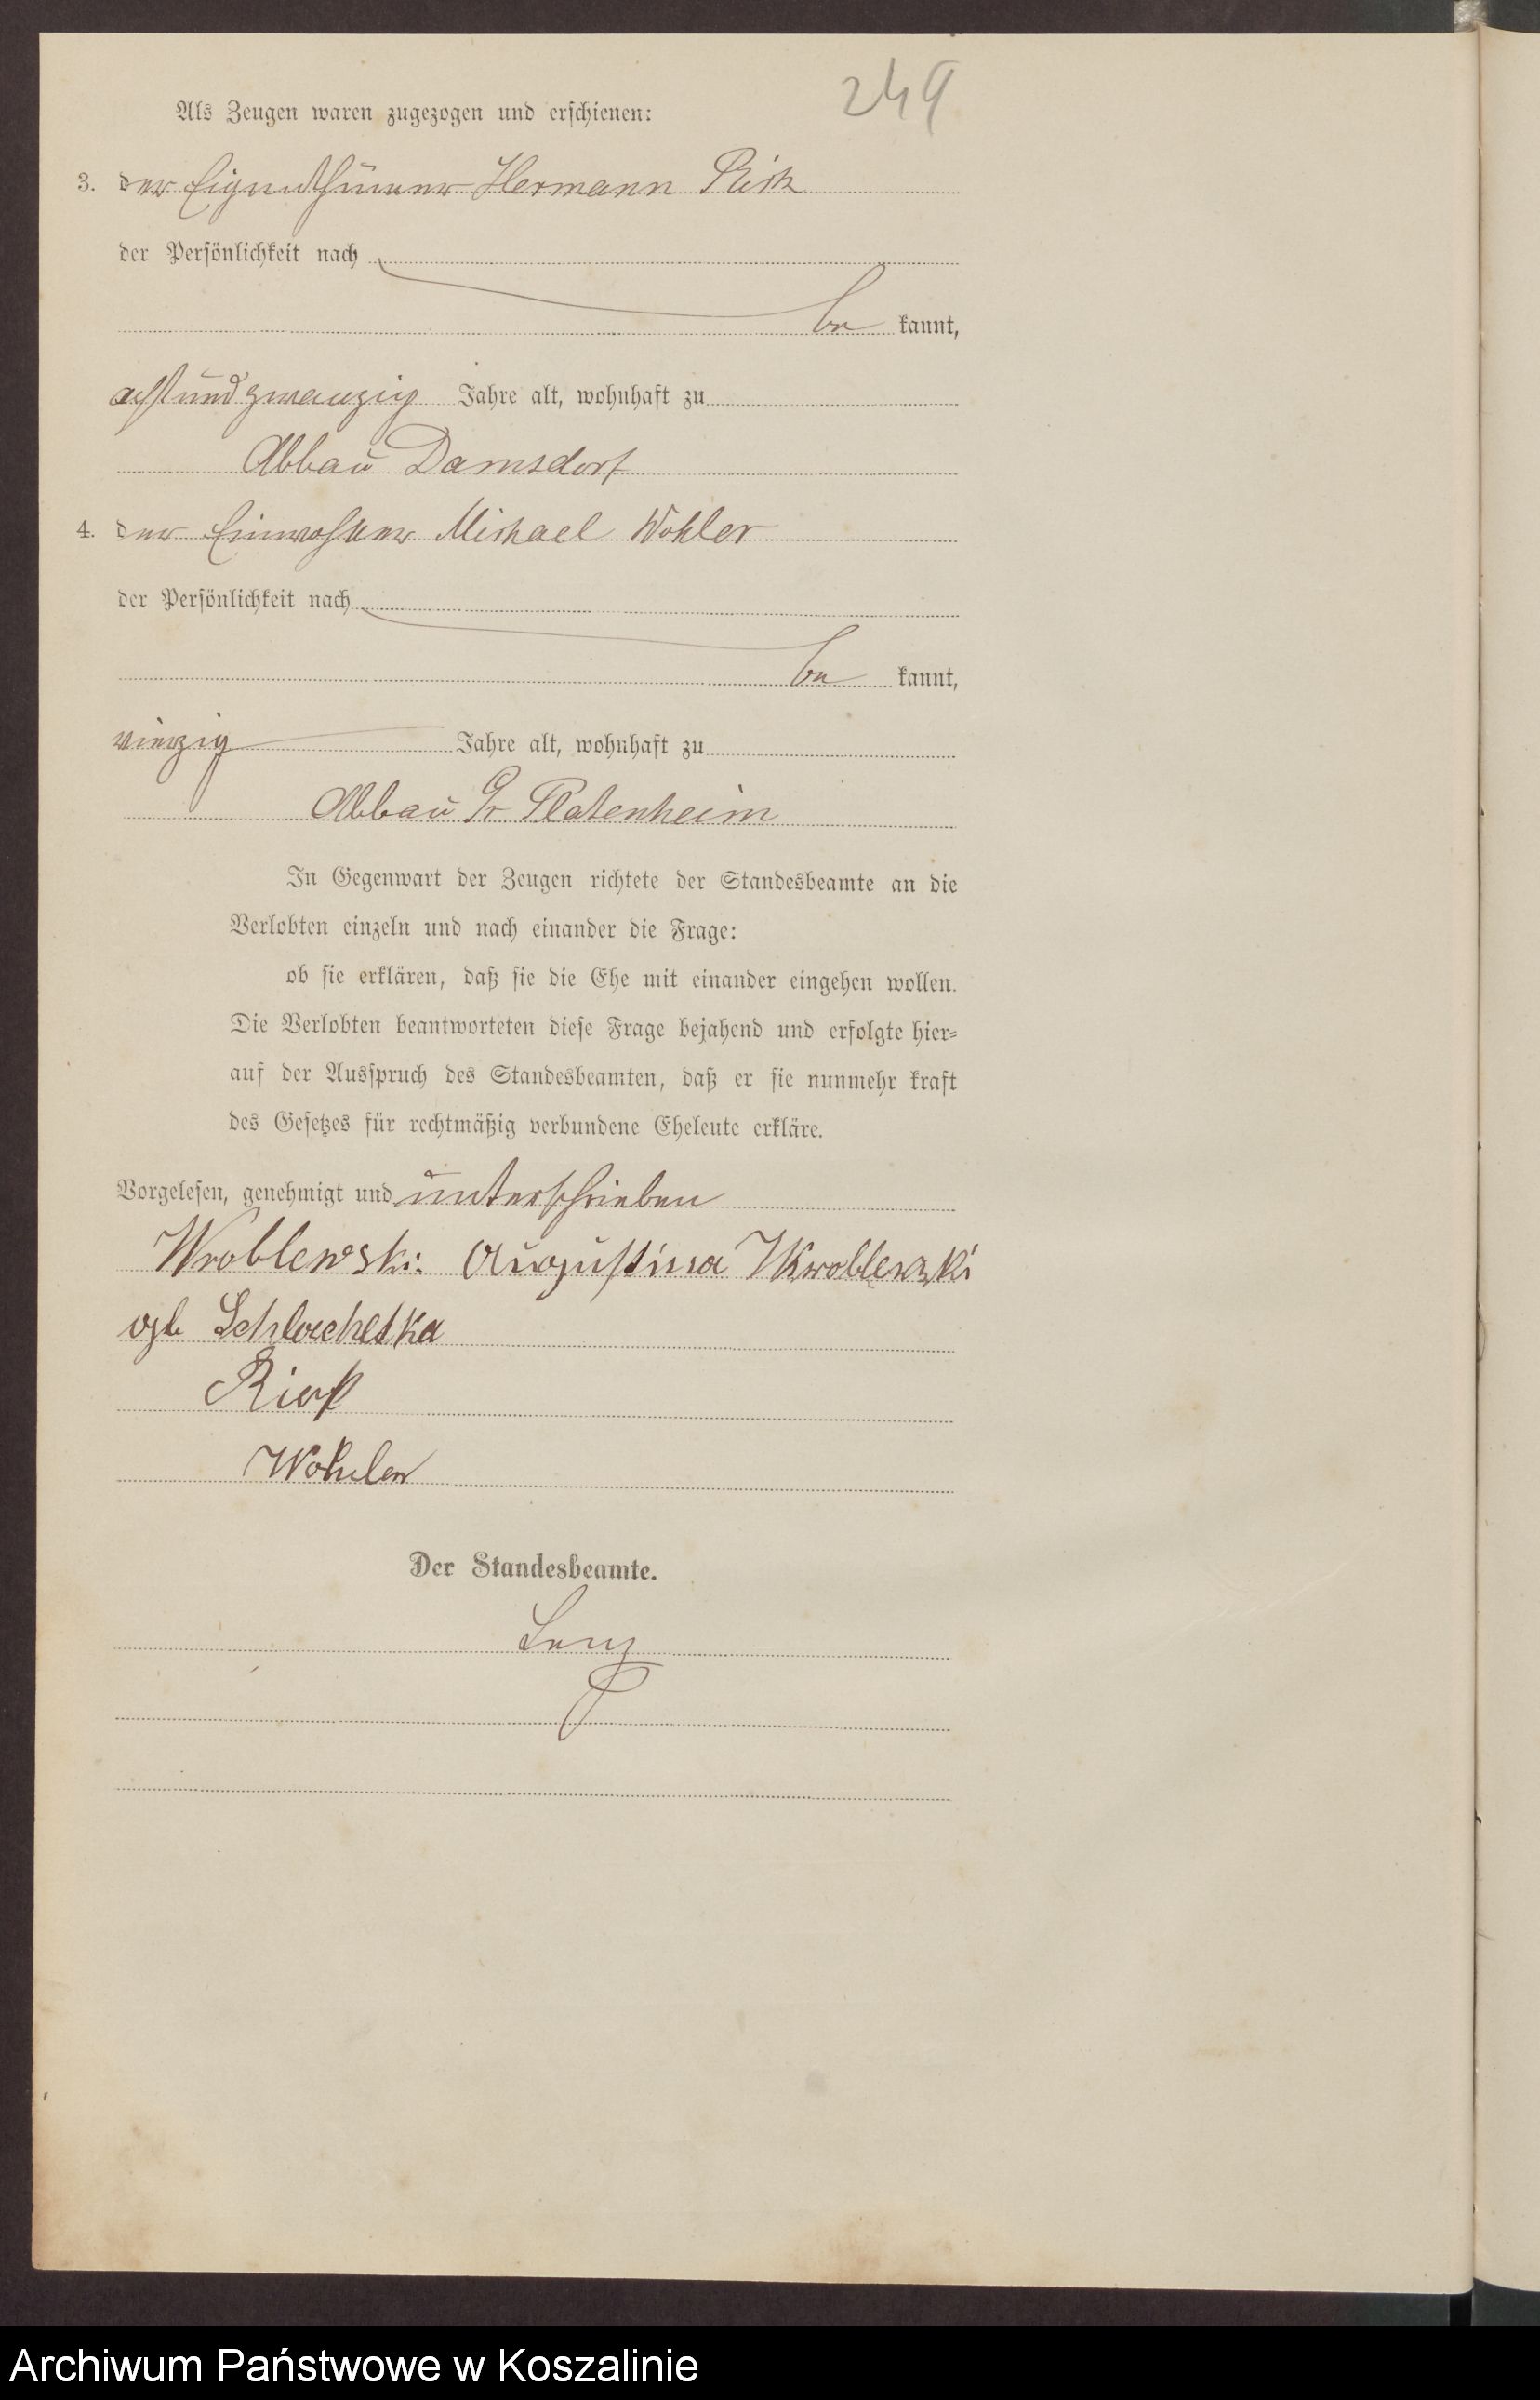 249
Als Zeugen waren zugezogen und erschienen:
3. der Eigenthümer Hermann
der Persönlichkeit nach
be kannt,
achtundzwanzig Jahre alt, wohnhaft zu
Abbau Damsdorf
4. der Einwohner Michael Wohler
der Persönlichkeit nach
be kannt,
vierzig Jahre alt, wohnhaft zu
Abbau Gr Platenheim
In Gegenwart der Zeugen richtete der Standesbeamte an die
Verlobten einzeln und nach einander die Frage:
ob sie erklären, daß sie die Ehe mit einander eingehen wollen.
Die Verlobten beantworteten diese Frage bejahend und erfolgte hier=
auf der Ausspruch des Standesbeamten, daß er sie nunmehr kraft
des Gesetzes für rechtmäßig verbundene Eheleute erkläre.
Vorgelesen, genehmigt und unterschrieben
Wroblewski. Augustina
Wohler
Der Standesbeamte.
Lenz
Archiwum Państwowe w Koszalinie